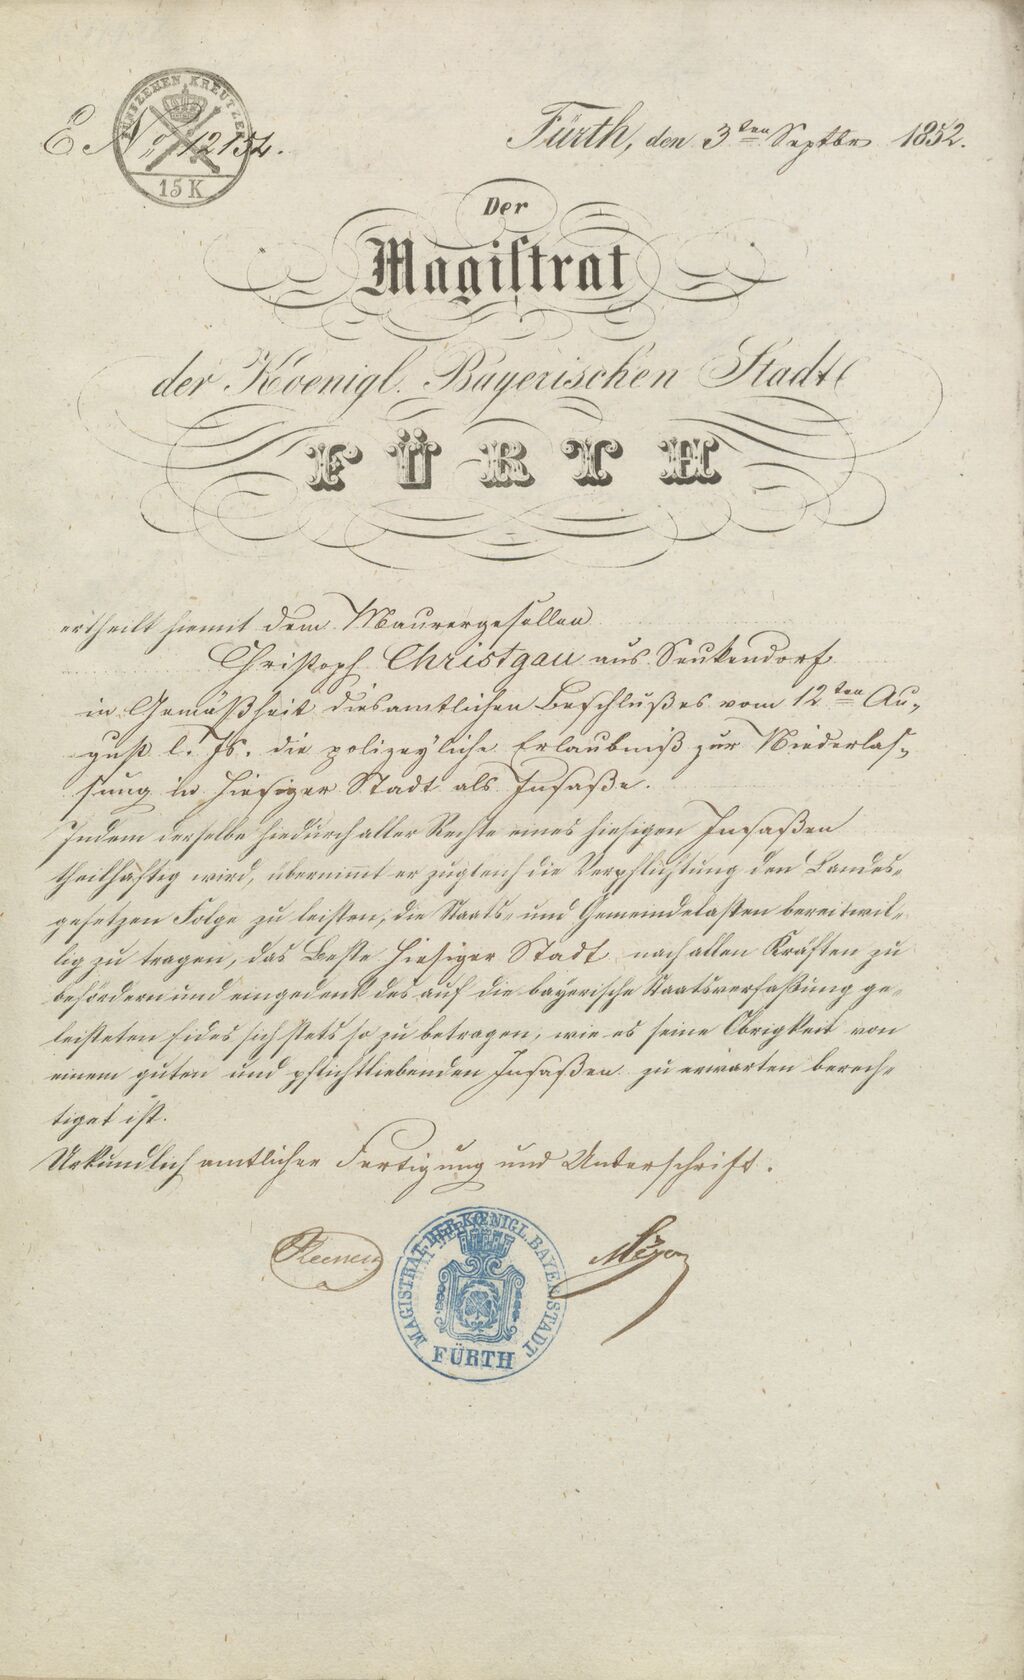 FÜNFZEHEN KREUTZER
15 K
E. No. 12154.
Fürth, den 3ten Septbr 1852.
Der
Magiſtrat
der Koenigl. Bayerischen Stadt
FÜRTH
ertheilt hiemit dem Maurergesellen
Christoph Christgau aus Seukendorf
in Gemäßheit diesamtlichen Beschlußes vom 12ten Au-
gust l. Js. die polizeyliche Erlaubniß zur Niederlas-
sung in hiesiger Stadt als Insaße.
Indem derselbe hiedurch aller Rechte eines hiesigen Insaßen
theilhaftig wird, übernimmt er zugleich die Verpflichtung den Landes-
gesetzen Folge zu leisten, die Staats- und Gemeindelasten bereitwil-
lig zu tragen, das Beste hiesiger Stadt nach allen Kräften zu
befördern und eingedenk des auf die bayerische Staatsverfaßung ge-
leisteten Eides sich stets so zu betragen, wie es seine Obrigkeit von
einem guten und pflichtliebenden Insaßen zu erwarten berech-
tiget ist.
Urkundlich amtlicher Fertigung und Unterschrift.
MAGISTRAT DER KOENIGL. BAYER. STADT
FÜRTH